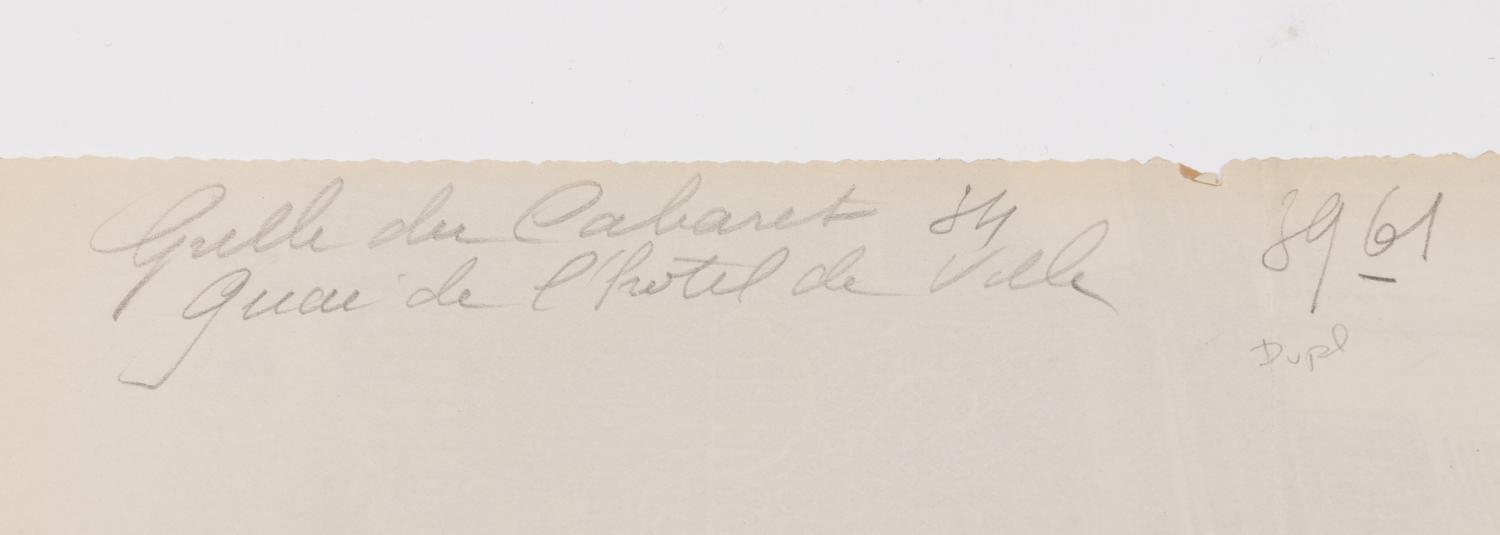 Grille du Cabaret 54
Quai de l'hôtel de Ville
3961
Dupl